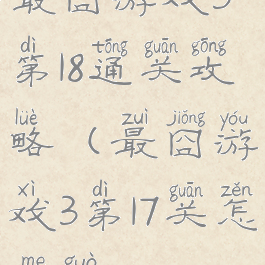 最囧游戏3
dì tōng guān gōng
第18通关攻
lüè zuì jiǒng yóu
略(最囧游
xì dì guān zěn
戏3第17关怎
me guò